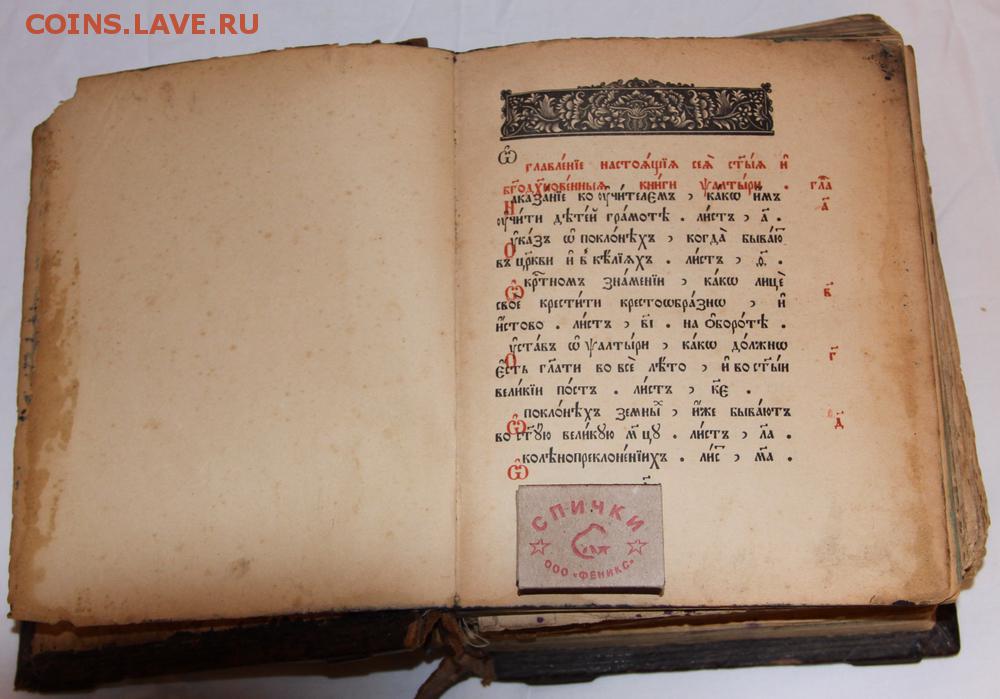 COINS.LAVE.RU
Ѡ҆главле́нїе настоѧ́щїѧ сеѧ̀ ст҃ы́ѧ и҆
бг҃одꙋхнове́нныѧ кни́ги ѱалты́ри . гла̑
Наказа́нїе ко ᲂу҆чи́телємъ , ка́кѡ и҆мъ а҃
ᲂу҆чи́ти дѣте́й гра́мотѣ . ли́стъ , а҃ .
Оу҆ка́зъ ѡ҆ покло́нѣхъ , когда̀ быва́ю
въ цр҃кви и҆ в̾ ке́лїѧхъ . ли́стъ , ѳ҃ .
Ѡ҆ крⷭ҇тномъ зна́менїи , ка́кѡ лицѐ в҃
своѐ крести́ти крестоѡбра́знѡ , и҆
и҆́стово . ли́стъ , в҃і . на ѻ҆боро́тѣ .
Оу҆ста́въ ѡ҆ ѱалты́ри , ка́кѡ до́лжнѡ г҃
є҆́сть гл҃ати во всѐ лѣ́то , и҆ во ст҃ы́и
вели́кїи по́стъ . ли́стъ , к҃є .
Ѡ҆ покло́нѣхъ земны́х , и҆́же быва́ютъ д҃
во ст҃ꙋ́ю вели́кꙋю мⷣцꙋ . ли́стъ , л҃а .
Ѡ҆ колѣнопреклоне́нїихъ . ли́с , м҃а .
СПИЧКИ
ООО «ФЕНИКС»